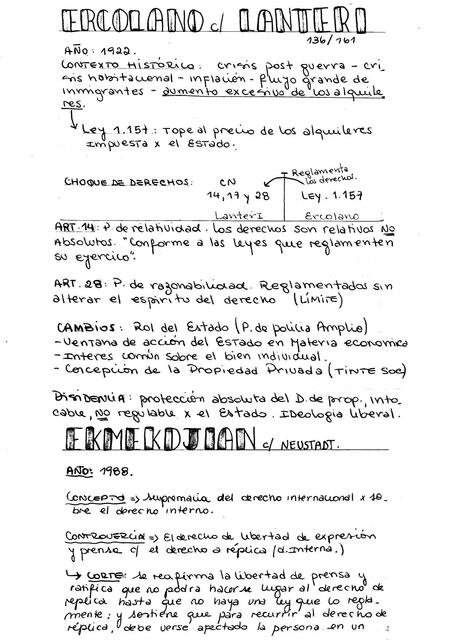 ERCOLANO c/ LANTERI
136/161
AÑO: 1922.
CONTEXTO HISTÓRICO: crisis post guerra - cri
sis habitacional - inflación - flujo grande de
inmigrantes - aumento excesivo de los alquile
res.
Ley 1.157: Tope al precio de los alquileres
impuesta x el Estado.
Reglamenta
los derechos.
CHOQUE DE DERECHOS: CN
14, 17 y 28 LEY. 1.157
Lanteri Ercolano
ART. 14: P. de relatividad. los derechos son relativos NO
Absolutos. "Conforme a las leyes que reglamenten
su ejercico".
ART. 28: P. de razonabilidad. Reglamentados sin
alterar el espíritu del derecho (LÍMITE)
CAMBIOS: Rol del Estado (P. de policía Amplio)
- Ventana de acción del Estado en Materia economica
- Interes común sobre el bien individual.
- Concepción de la Propiedad Privada (TINTE SOC)
DISIDENCIA: protección absoluta del D. de prop., into
cable, NO regulable x el Estado. IDeologia liberal.
EKMEKDJIAN c/ NEUSTADT.
AÑO: 1988.
CONCEPTO => Supremacia del derecho internacional x so
bre el derecho interno.
CONTROVERCIA => El derecho de libertad de expresión
y prensa c/ el derecho a réplica (d. Interna.)
CORTE: Se reafirma la libertad de prensa y
ratifica que no podra hacerse lugar al derecho de
replica hasta que no haya una ley que lo regla-
mente; y sentiene que para recurrir al derecho de
réplica, debe verse afectado la persona en un